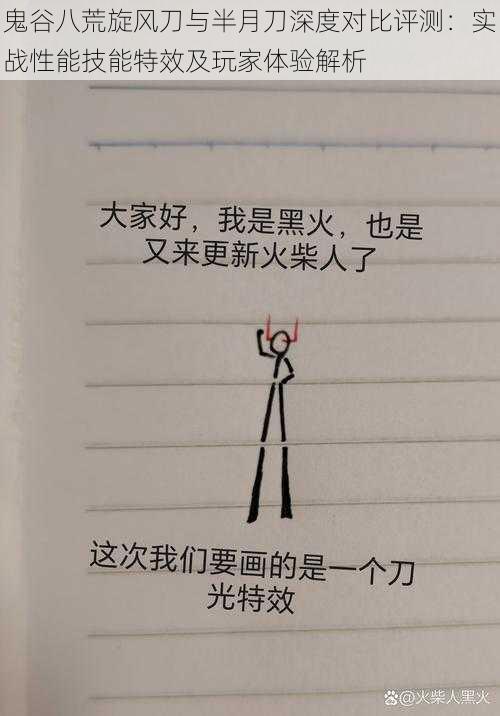 鬼谷八荒旋风刀与半月刀深度对比评测：实
战性能技能特效及玩家体验解析
大家好，我是黑火，也是
又来更新火柴人了
这次我们要画的是一个刀
光特效
@火柴人黑火